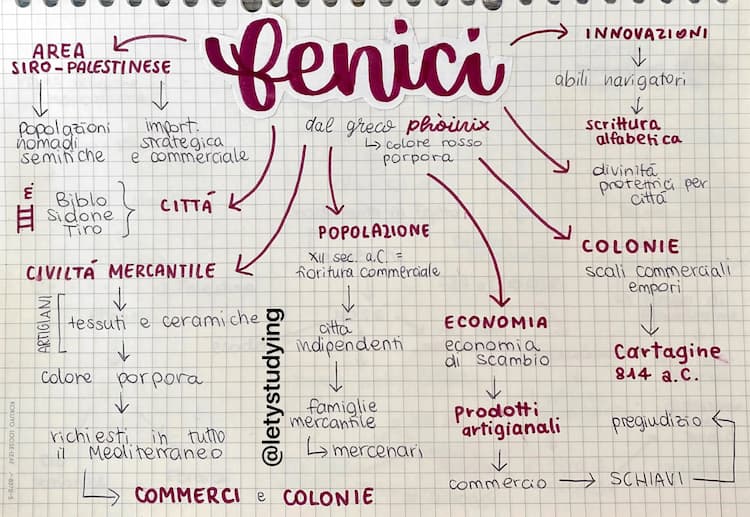 fenici
dal greco phòinix
↳ colore rosso
porpora
AREA
SIRO-PALESTINESE
popolazioni
nomadi
semitiche
import.
strategica
e commerciale
III m.
Biblo
Sidone
Tiro
CITTÁ
CIVILTÁ MERCANTILE
ARTIGIANI
tessuti e ceramiche
colore porpora
richiesti in tutto
il Mediterraneo
COMMERCI e COLONIE
POPOLAZIONE
XII sec. a.C. =
fioritura commerciale
città
indipendenti
famiglie
mercantile
↳ mercenari
@letystudying
ECONOMIA
economia
di scambio
prodotti
artigianali
commercio → SCHIAVI
pregiudizio
INNOVAZIONI
abili navigatori
scrittura
alfabetica
divinità
protettrici per
città
COLONIE
scali commerciali
empori
Cartagine
814 a.C.